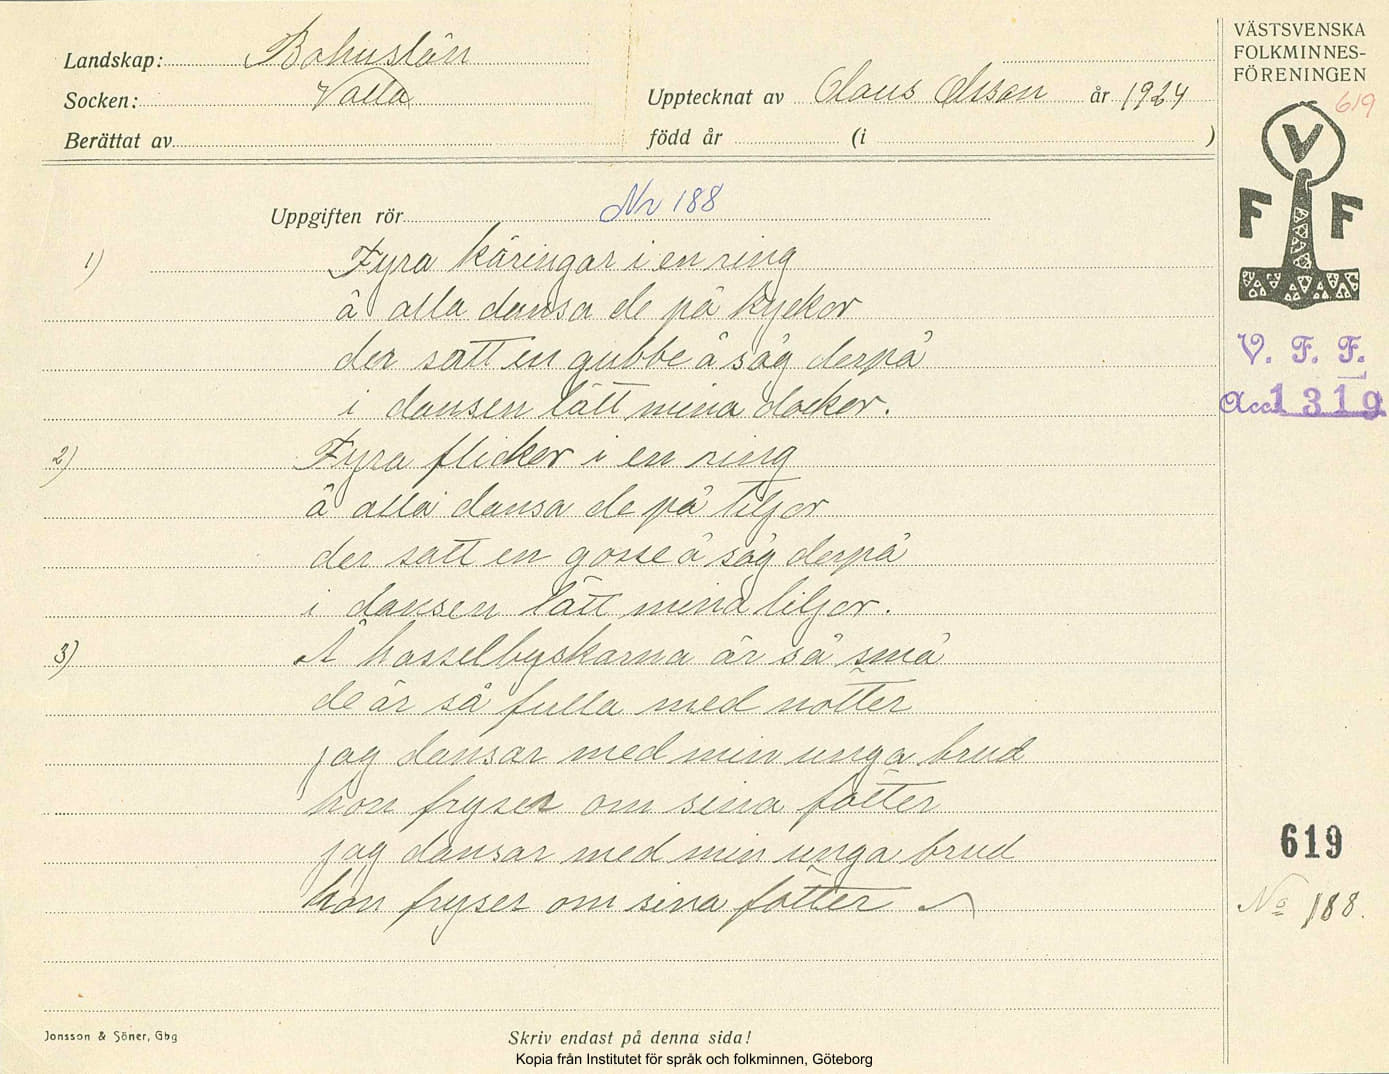 Landskap: Bohuslän
Socken: Valla
Upptecknat av Claus Olsson år 1924
Berättat av
född år (i )
VÄSTSVENSKA
FOLKMINNES-
FÖRENINGEN
619
V
F F
Uppgiften rör Nr 188
1) Fyra käringar i en ring
å alla dansa de på kyckor
der satt en gubbe å såg derpå
i dansen lätt mina dockor.
2) Fyra flickor i en ring
å alla dansa de på tiljor
der satt en gosse å såg derpå
i dansen lätt mina liljor.
3) Å hasselbyskarna är så små
de är så fulla med nötter
jag dansar med min unga brud
hon fryser om sina fötter
jag dansar med min unga brud
hon fryser om sina fötter
V. F. F.
Acc 1319
619
No 188.
Jonsson & Söner, Gbg
Skriv endast på denna sida!
Kopia från Institutet för språk och folkminnen, Göteborg